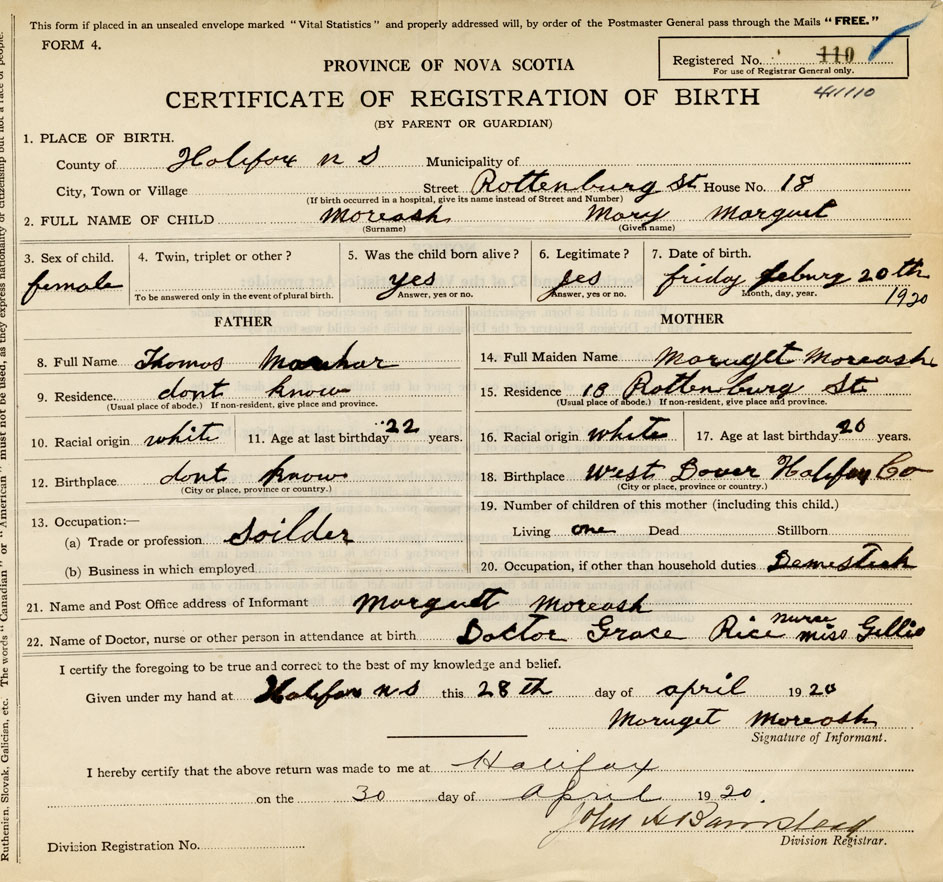 This form if placed in an unsealed envelope marked "Vital Statistics" and properly addressed will, by order of the Postmaster General pass through the Mails "FREE."
FORM 4.
Registered No. 110
For use of Registrar General only.
PROVINCE OF NOVA SCOTIA
411110
CERTIFICATE OF REGISTRATION OF BIRTH
(BY PARENT OR GUARDIAN)
1. PLACE OF BIRTH.
County of Halifax n S Municipality of
City, Town or Village Street Rottenburg St House No. 18
(If birth occurred in a hospital, give its name instead of Street and Number)
2. FULL NAME OF CHILD Moreash Mary Marguet
(Surname) (Given name)
3. Sex of child. 4. Twin, triplet or other? 5. Was the child born alive? 6. Legitimate? 7. Date of birth.
female yes yes friday feburg 20th
To be answered only in the event of plural birth. Answer, yes or no. Answer, yes or no. Month, day, year. 1920
FATHER MOTHER
8. Full Name Thomas
14. Full Maiden Name Maruget Moreash
9. Residence dont know
(Usual place of abode.) If non-resident, give place and province.
15. Residence 18 Rottenburg St
(Usual place of abode.) If non-resident, give place and province.
10. Racial origin white 11. Age at last birthday 22 years.
16. Racial origin white 17. Age at last birthday 20 years.
12. Birthplace dont know
(City or place, province or country.)
18. Birthplace West Dover Halifax Co
(City or place, province or country.)
13. Occupation:—
(a) Trade or profession Soilder
(b) Business in which employed
19. Number of children of this mother (including this child.)
Living one Dead Stillborn
20. Occupation, if other than household duties
21. Name and Post Office address of Informant Marguet Moreash
22. Name of Doctor, nurse or other person in attendance at birth Doctor Grace Rice nurse miss Gillis
I certify the foregoing to be true and correct to the best of my knowledge and belief.
Given under my hand at Halifax n S this 28th day of april 1920
Maruget Moreash
Signature of Informant.
I hereby certify that the above return was made to me at Halifax
on the 30 day of April 1920.
John H
Division Registrar.
Division Registration No.
Ruthenian, Slovak, Galician, etc. The words "Canadian" or "American" must not be used, as they express nationality or citizenship but not a race of people.